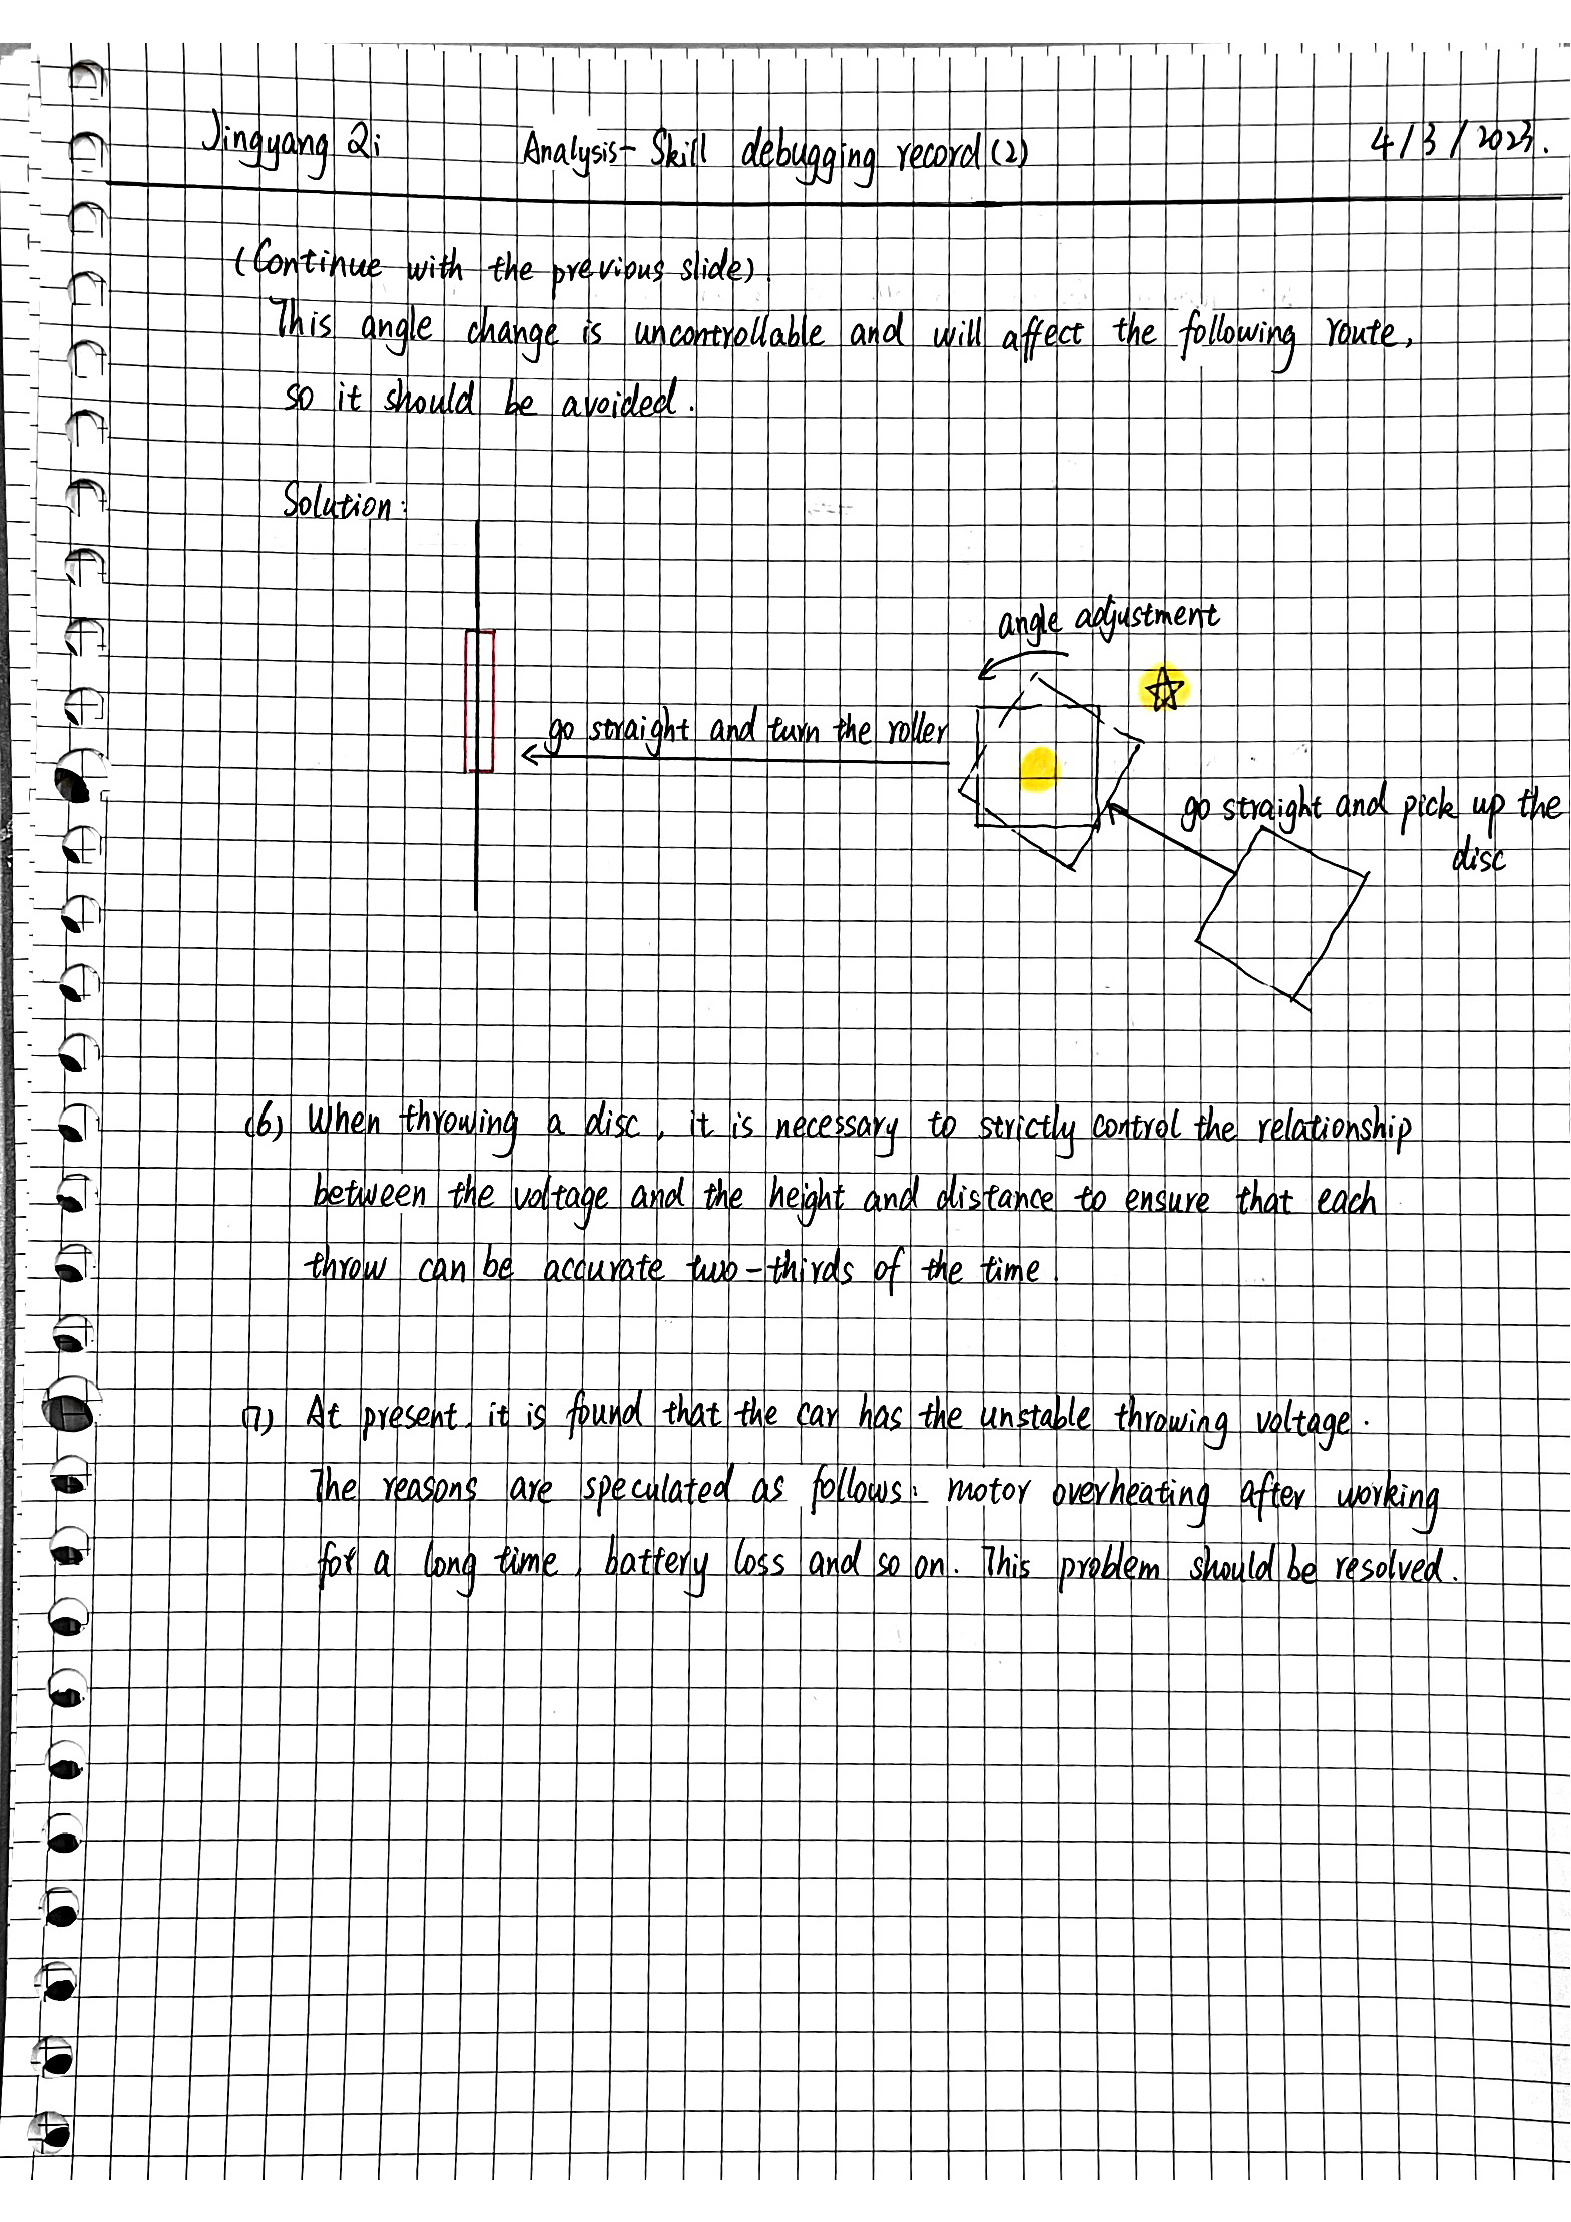 Jingyang Qi Analysis- Skill debugging record (2) 4/3/2023.
(Continue with the previous slide).
This angle change is uncontrollable and will affect the following route,
so it should be avoided.
Solution:
angle adjustment
go straight and turn the roller
go straight and pick up the
disc
(6) When throwing a disc, it is necessary to strictly control the relationship
between the voltage and the height and distance to ensure that each
throw can be accurate two-thirds of the time.
(7) At present, it is found that the car has the unstable throwing voltage.
The reasons are speculated as follows: motor overheating after working
for a long time, battery loss and so on. This problem should be resolved.